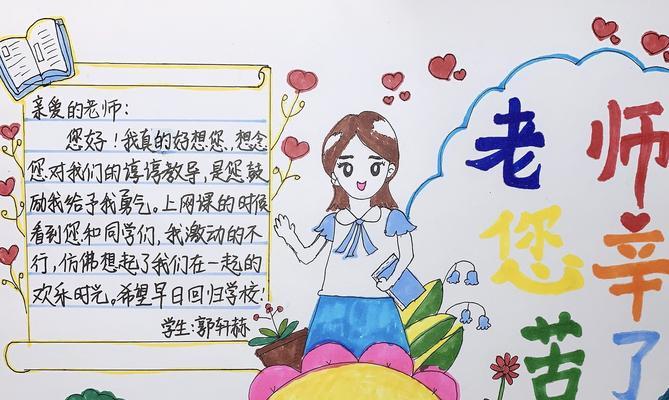 亲爱的老师：
您好！我真的好想您，想念
您对我们的谆谆教导，是您鼓
励我给予我勇气。上网课的时候
看到您和同学们，我激动的不
行，仿佛想起了我们在一起的
欢乐时光。希望早日回归学校！
学生：郭轩赫
老师
您辛
苦了